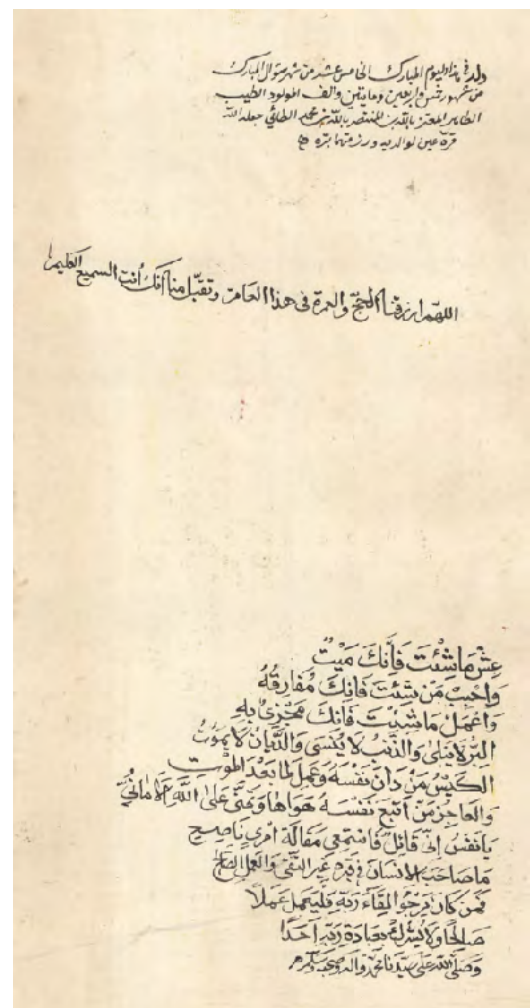 ولد في هذا اليوم المبارك الخامس عشر من شهر شوال المبارك
من شهور خمس واربعين ومايتين والف المولود الطيب
الطاهر المعتز بالله بن المنتصر بالله بن محمد الطائي جعله الله
قرة عين لوالديه ورزقهما بره
اللهم ارزقنا الحجّ والعمرة في هذا العام وتقبّل منا انك أنت السميع العليم
عِشْ مَا شِئْتَ فَإِنَّكَ مَيِّتٌ
وَاحْبِبْ مَنْ شِئْتَ فَإِنَّكَ مُفَارِقُهُ
وَاعْمَلْ مَا شِئْتَ فَإِنَّكَ مَجْزِيٌّ بِهِ
البِرُّ لَا يَبْلَى وَالذَّنْبُ لَا يُنْسَى وَالدَّيَّانُ لَا يَمُوتُ
الكَيِّسُ مَنْ دَانَ نَفْسَهُ وَعَمِلَ لِمَا بَعْدَ المَوْتِ
وَالعَاجِزُ مَنْ أَتْبَعَ نَفْسَهُ هَوَاهَا وَتَمَنَّى عَلَى اللهِ الأَمَانِيَّ
يَا نَفْسُ إِنِّي قَائِلٌ فَاسْتَمِعِي مَقَالَةَ امْرِئٍ نَاصِحٍ
مَا صَاحَبَ الإِنْسَانَ فِي قَبْرِهِ غَيْرُ التُّقَى وَالعَمَلِ الصَّالِحِ
فَمَنْ كَانَ يَرْجُوا لِقَاءَ رَبِّهِ فَلْيَعْمَلْ عَمَلاً
صَالِحًا وَلَا يُشْرِكْ بِعِبَادَةِ رَبِّهِ أَحَدًا
وَصَلَّى اللهُ عَلَى سَيِّدِنَا مُحَمَّدٍ وَآلِهِ وَصَحْبِهِ وَسَلَّمَ